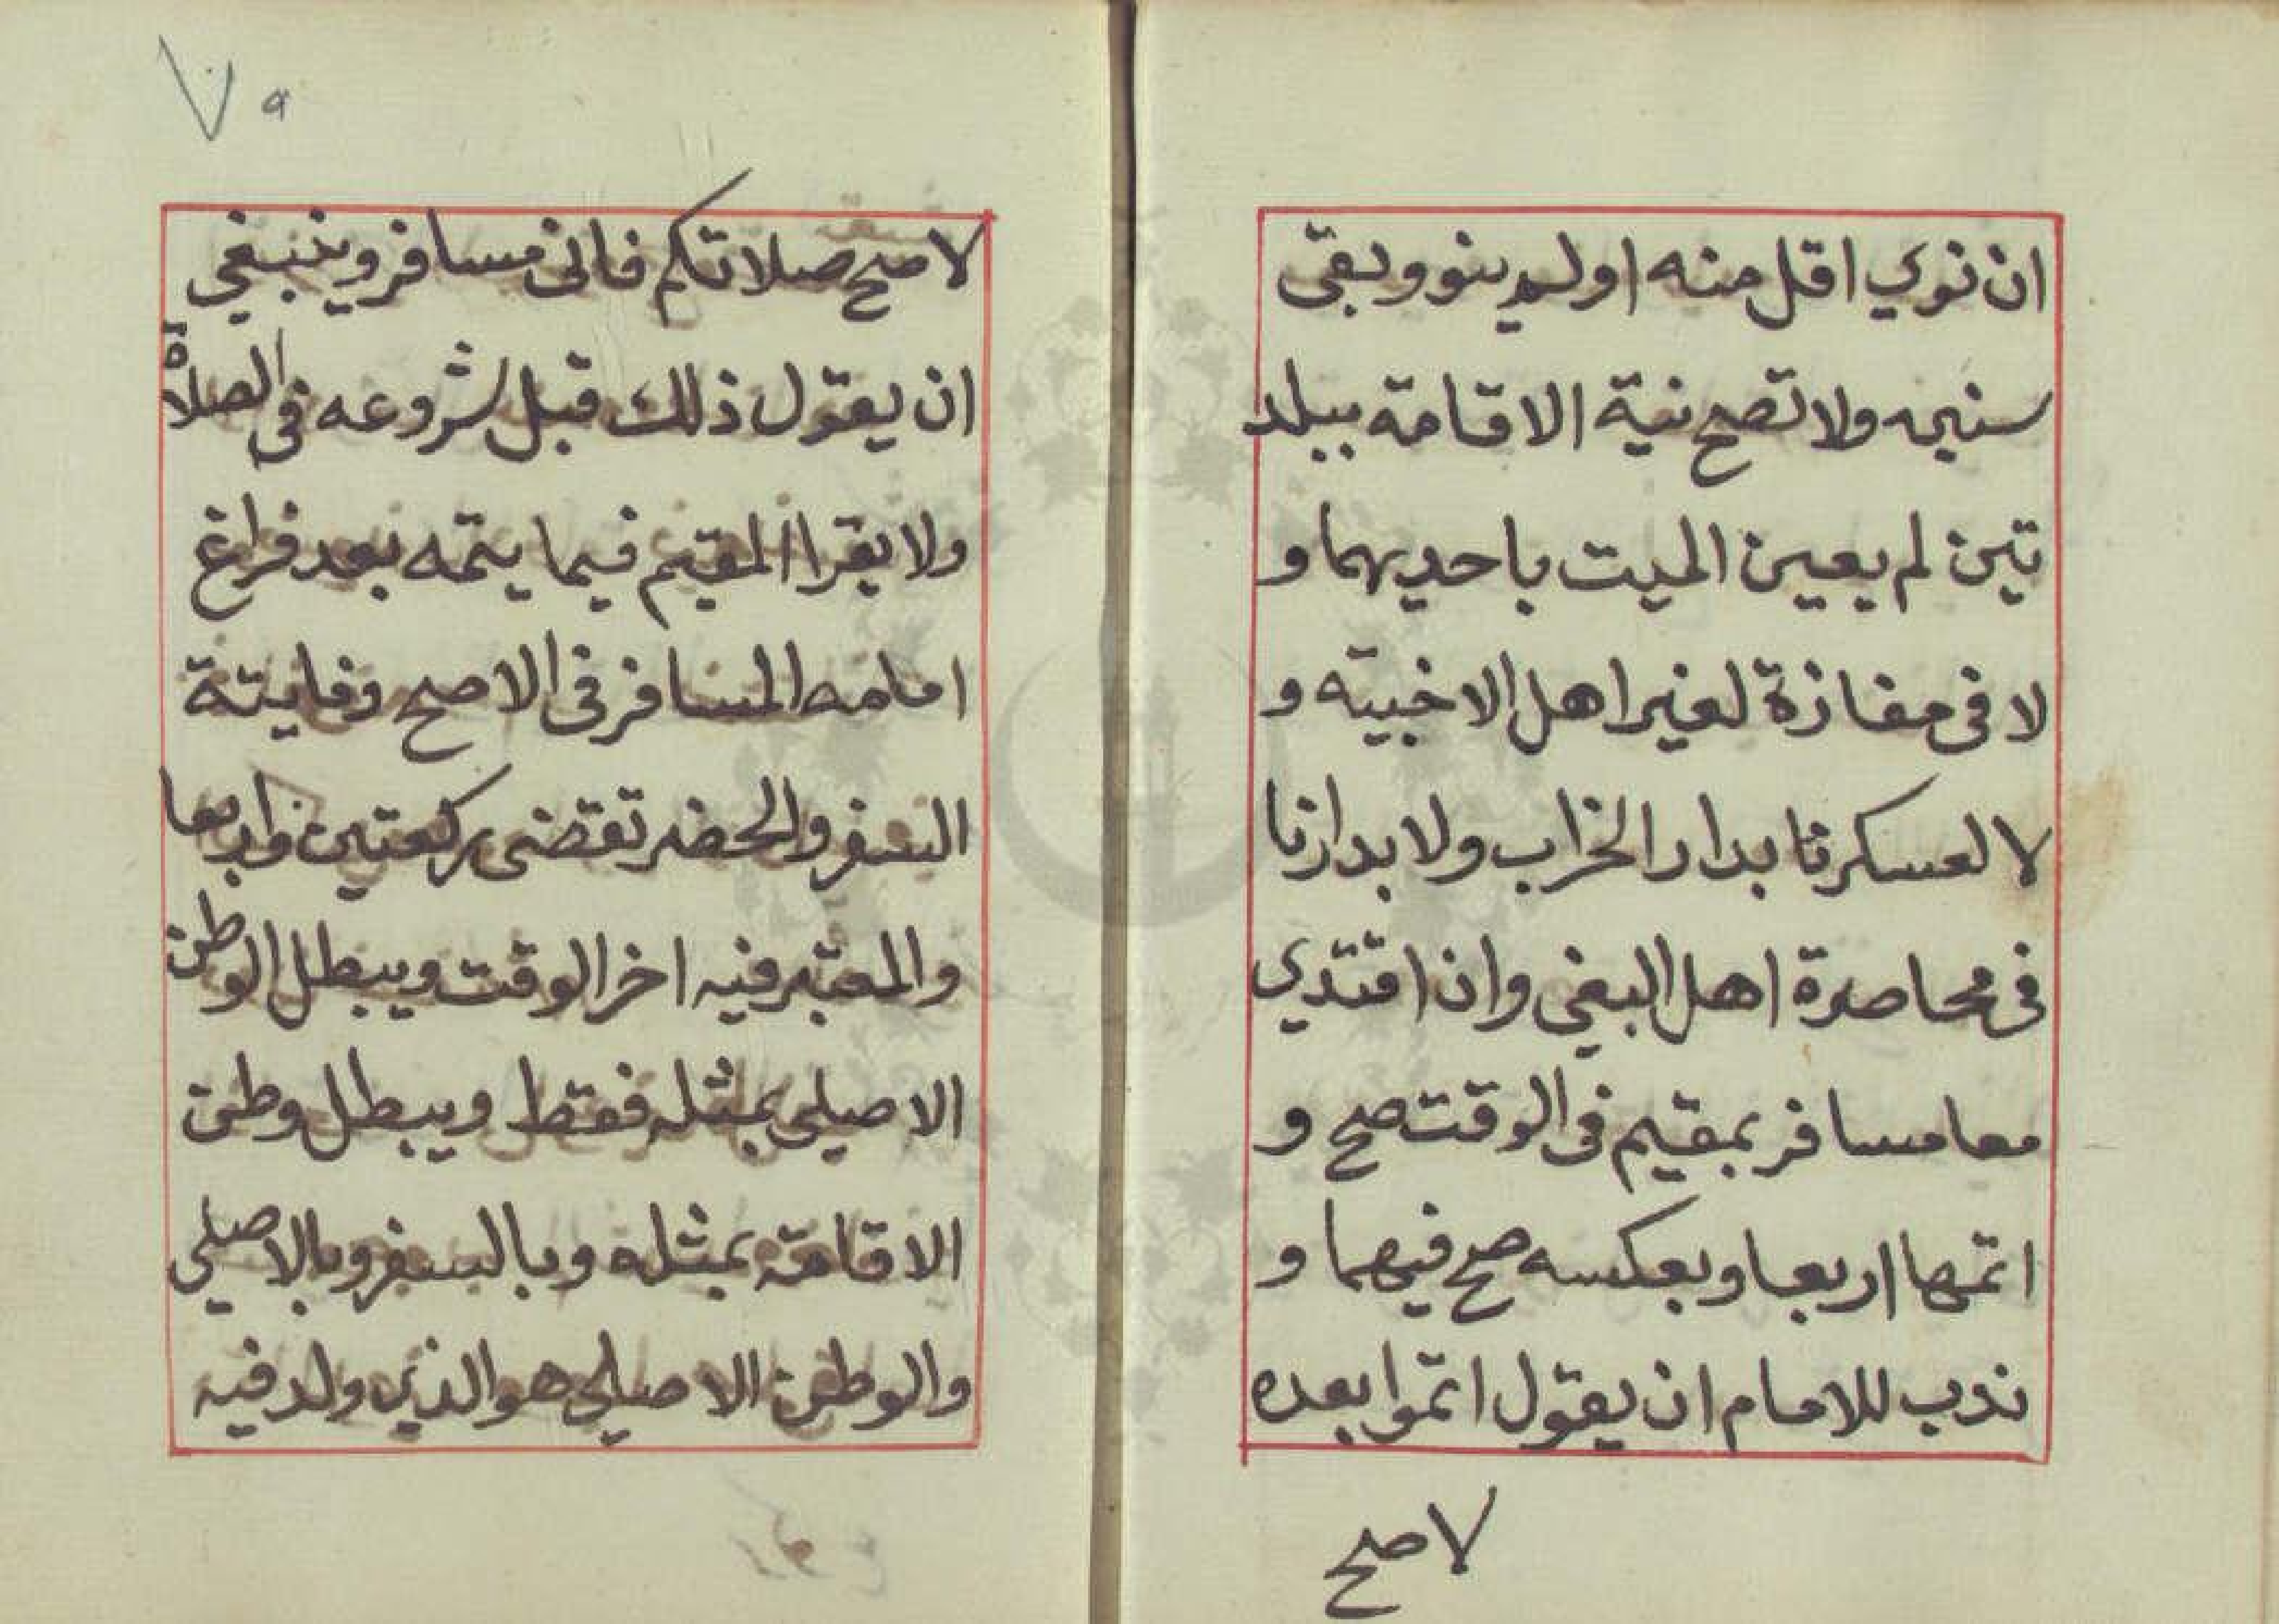 ان نوي اقل منه اولم ينو وبقى
سنين ولا تصح نية الاقامة ببلد
تين لم يعين الميت باحديهما و
لا فى مفازة لغير اهل الاخبية و
لا لعسكرنا بدار الخراب ولا بدارنا
فى محاصرة اهل البغى وان اقتدي
معا مسافر بمقيم فى الوقت صح و
اتمها اربعا وبعكسه صح فيهما و
ندب للامام ان يقول اتموا بعده
لا صح
٧٩
لا صح صلاتكم فانى مسافر وينبغي
ان يقول ذلك قبل شروعه فى الصلاة
ولا يقرا المقيم فيما يتمه بعد فراغ
امامه المسافر فى الاصح وفايتة
السفر والحضر تقضى ركعتين واربعا
والمعتبر فيه اخر الوقت ويبطل الوطن
الاصيلي بمثله فقط ويبطل وطن
الاقامة بمثله وبالسفر وبالاصلي
والوطن الاصيلي هو الذي ولد فيه